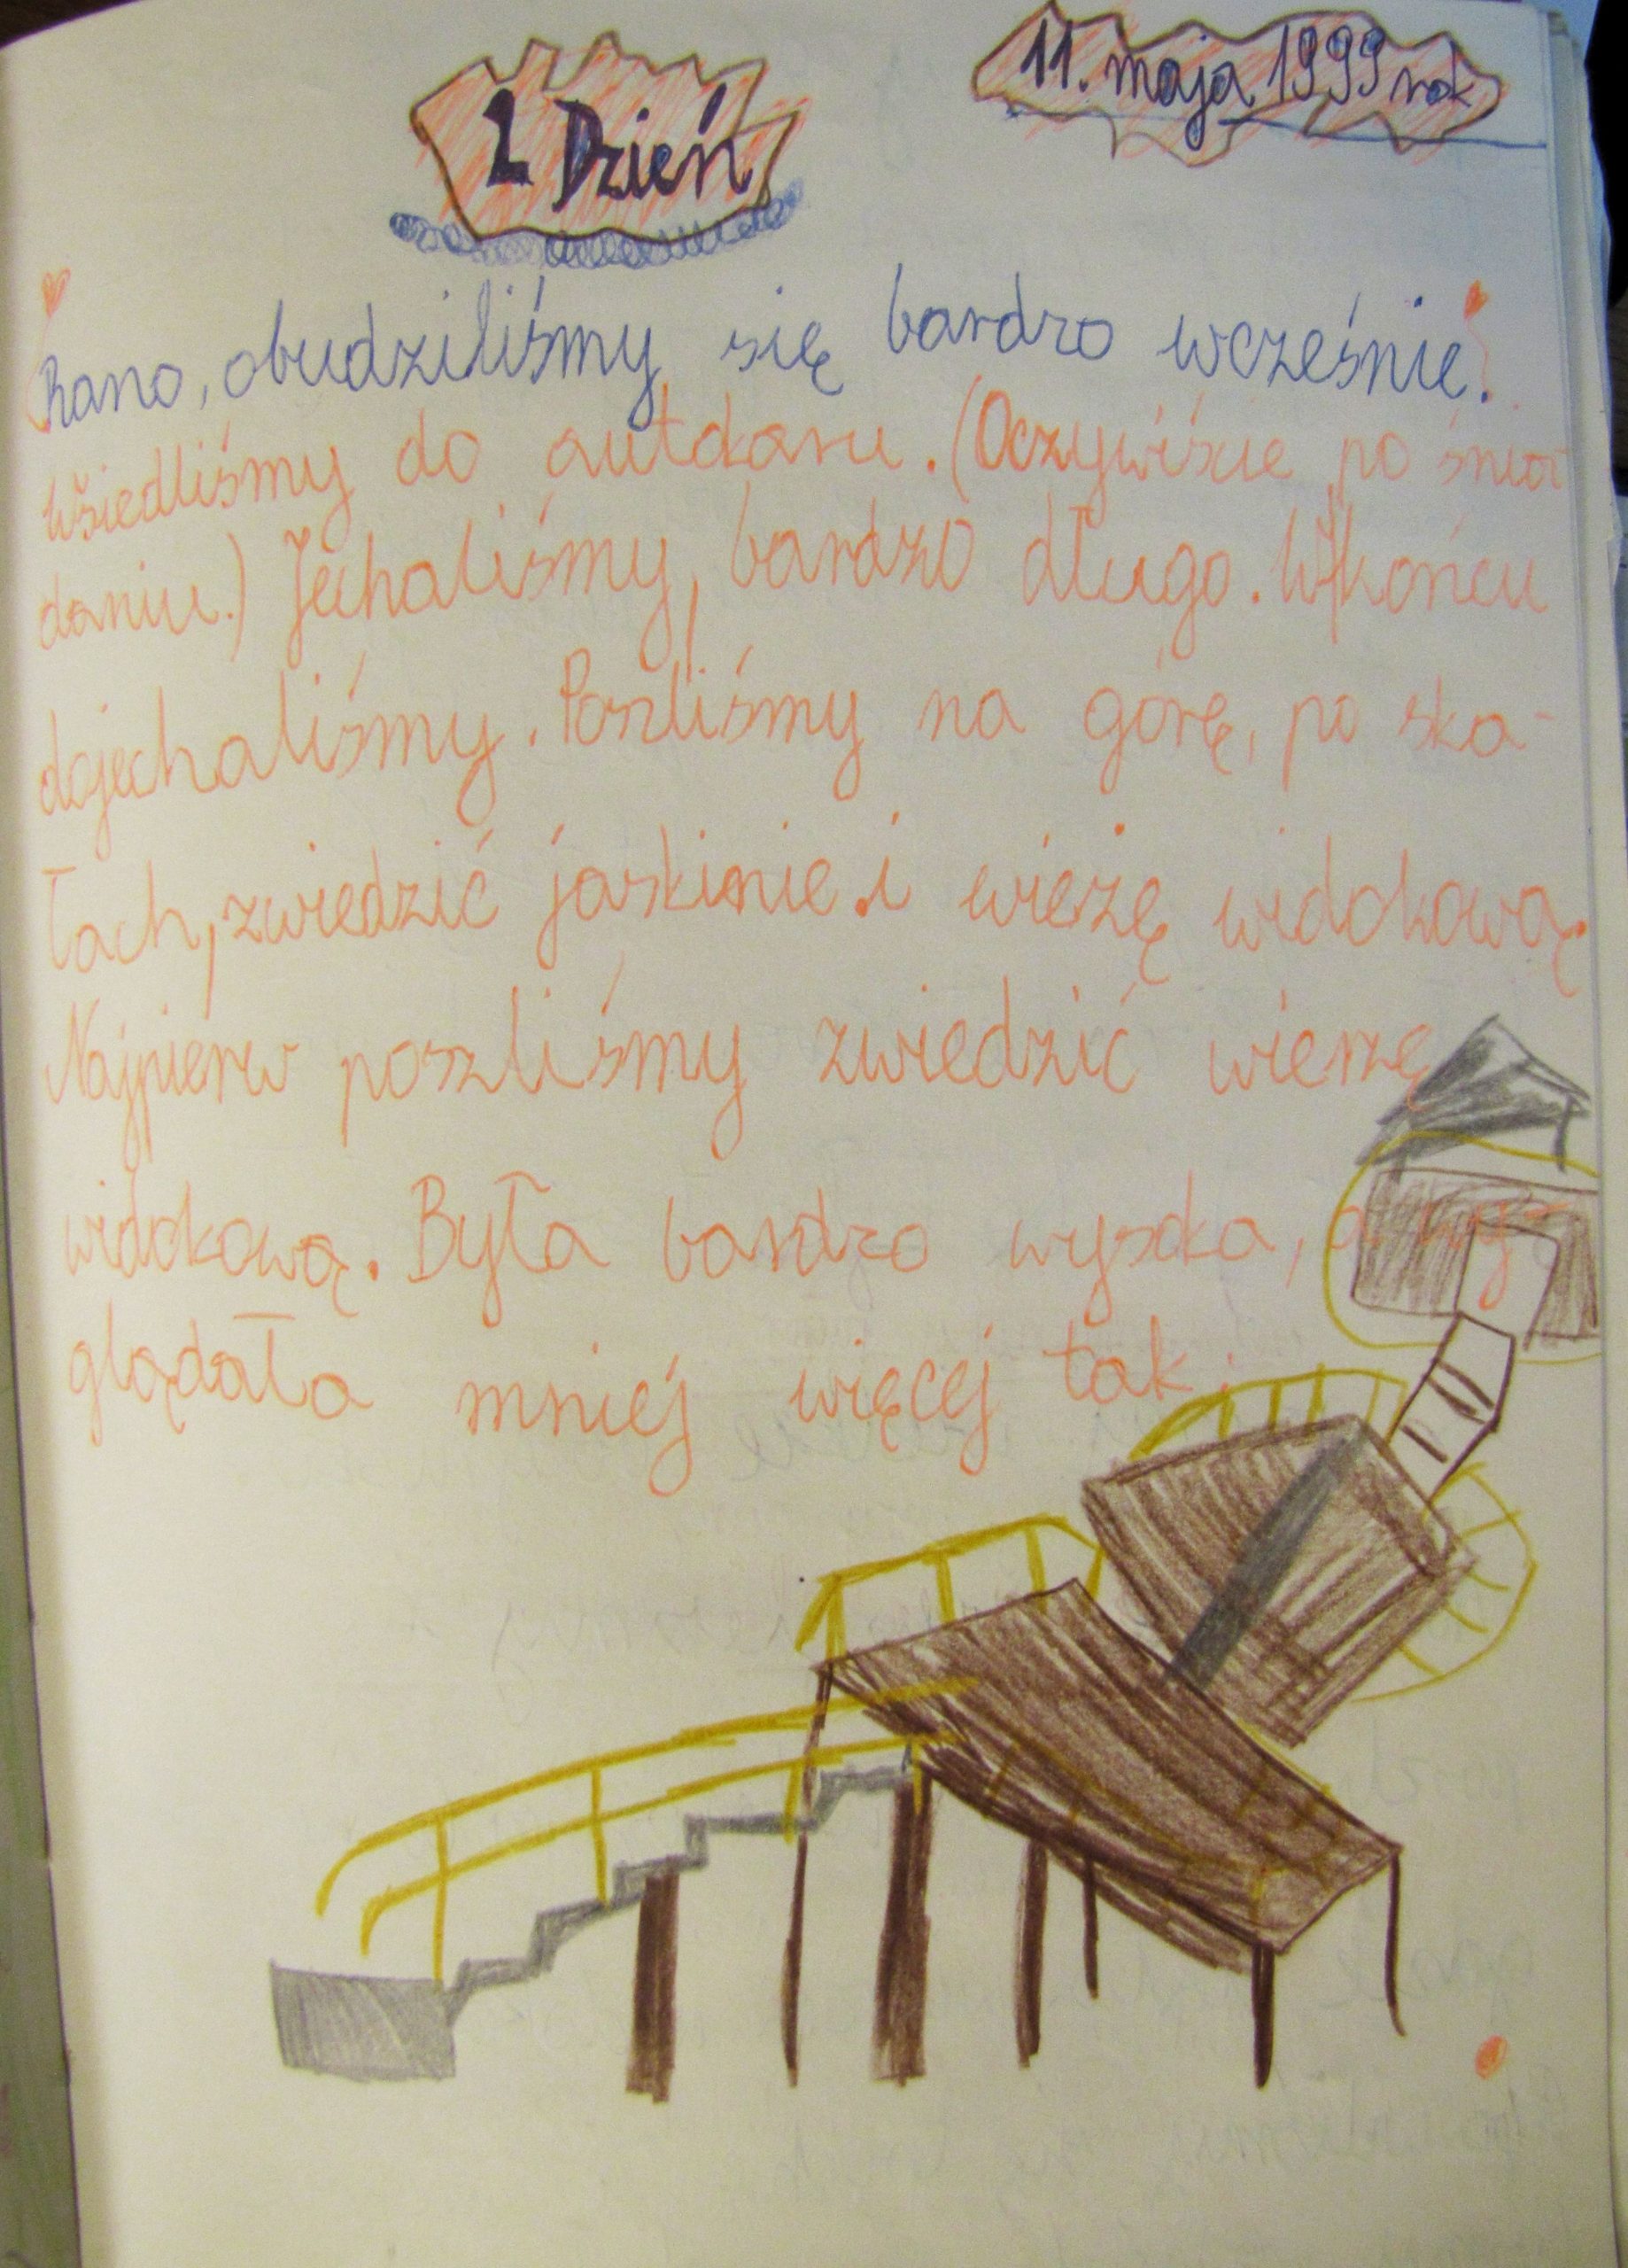 2 Dzień
11. maja 1999 rok
Rano, obudziliśmy się bardzo wcześnie.
Wsiedliśmy do autokaru. (Oczywiście po śnia
daniu.) Jechaliśmy, bardzo długo. W końcu
dojechaliśmy. Poszliśmy na górę, po ska-
łach, zwiedzić jaskinie i wieżę widokową.
Najpierw poszliśmy zwiedzić wierzę
widokową. Była bardzo wysoka, a wy-
glądała mniej więcej tak: